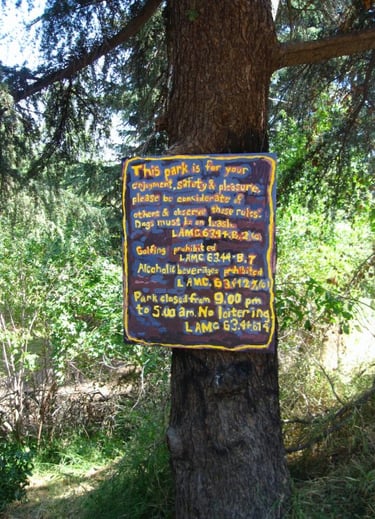 This park is for your
enjoyment, safety & pleasure,
please be considerate of
others & observe these rules:
Dogs must be on leash.
LAMC 63.44-B.2(a)
Golfing prohibited
LAMC 63.44-B.7
Alcoholic beverages prohibited
LAMC
Park closed from 9:00 pm
to 5:00 am. No loitering
LAMC